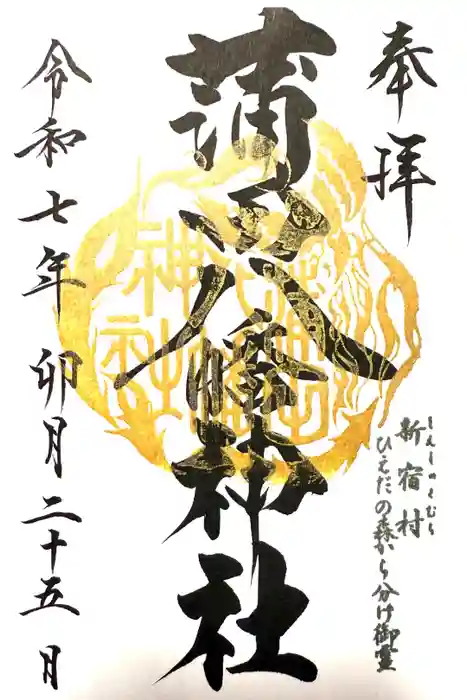 奉拝
蒲田八幡神社
しんしゅくむら
新宿村
ひえだの森から分け御霊
令和七年卯月二十五日